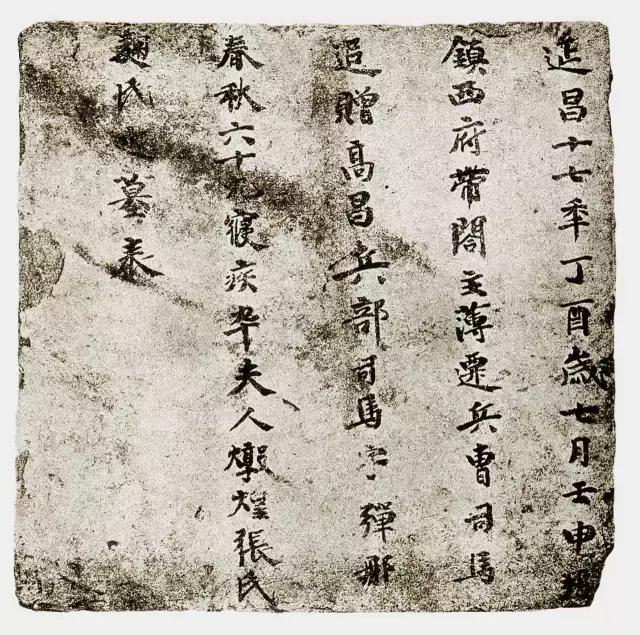 延昌十七年丁酉歲七月壬申
鎮西府帶閤主薄遷兵曹司馬
追贈高昌兵部司馬字彈那
春秋六十九寢疾卒夫人燉煌張氏
麴氏之墓表